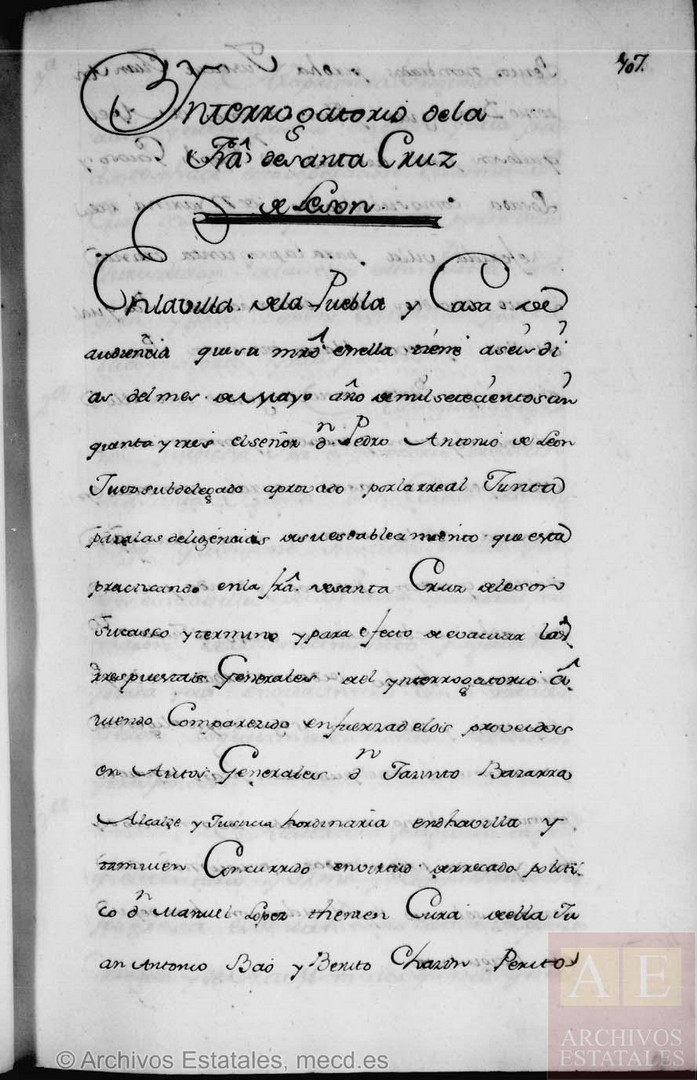 707.
Ynterrogatorio dela
Fra^a desanta Cruz
de Leson
Enlavilla dela Puebla y Casa de
audiencia que su mrd enella tiene aseis di
as del mes de Mayo año de mil setecientos cin
quenta y tres el señor dn Pedro Antonio de Leon
Juez subdelegado aprovado porlarreal Junta
paralas deligencias desu establecimiento que esta
practicando enla fra. desanta Cruz deleson
su casco y termino y para efecto de evacuar las
rrespuestas Generales del ynterrogatorio a
viendo Comparezido enfuerzadelos proveidos
en Autos Generales dn Bazarra
Alcalde y Justicia hordinaria endhavilla y
tamvien Concurrido envirtud derrecado politi
co dn Manuel Lopez Cura della Ju
an Antonio Bao y Benito Charin Peritos
© Archivos Estatales, mecd.es
AE
ARCHIVOS
ESTATALES